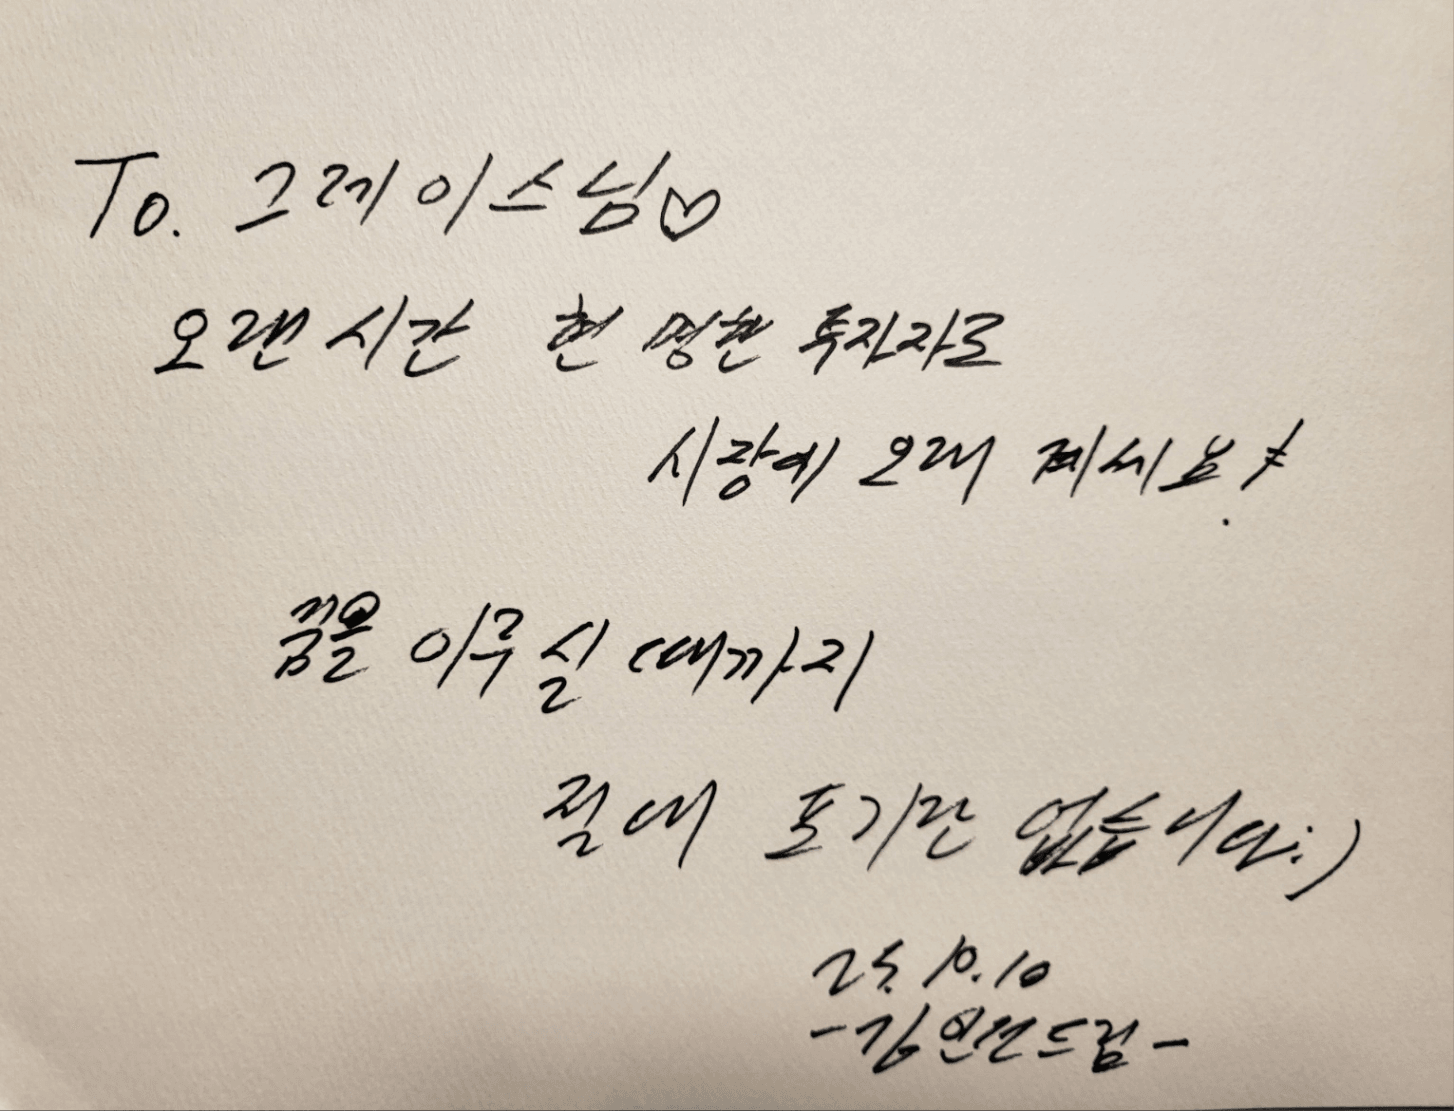 To. 그레이스님♡
오랜시간 현명한 투자자로
시장에 오래 계세요!
꿈을 이루실 때까지
절대 포기란 없습니다:)
25. 10. 10
-김 드림-